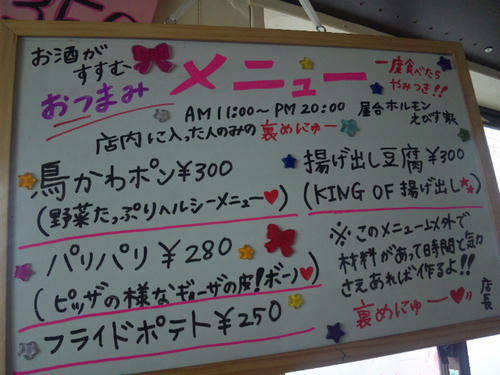 お酒が
すすむ
おつまみ
メニュー
一度食べたら
やみつき!!
AM 11:00～PM 20:00
屋台ホルモン
えびす家
店内に入った人のみの裏めにゅー
鳥かわポン¥300
(野菜たっぷりヘルシーメニュー♥)
パリパリ ¥280
(ピッザの様なギョーザの皮!ボーノ♥)
フライドポテト¥250
揚げ出し豆腐¥300
(KING OF 揚げ出し★★)
※このメニュー以外で
材料があって時間と気力
さえあれば作るよ!!
店長
裏めにゅー♥